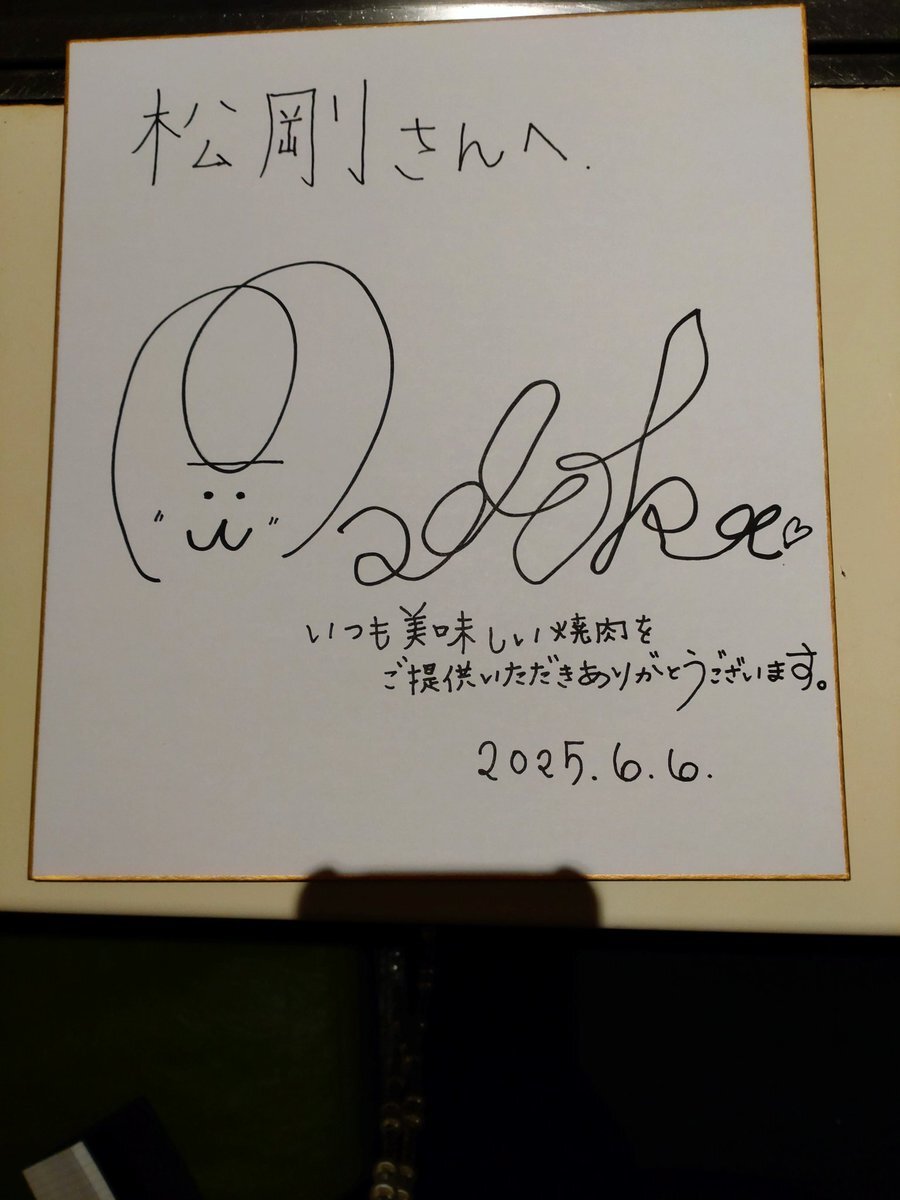 松剛さんへ.
Madoka♡
いつも美味しい焼肉を
ご提供いただきありがとうございます。
2025.6.6.